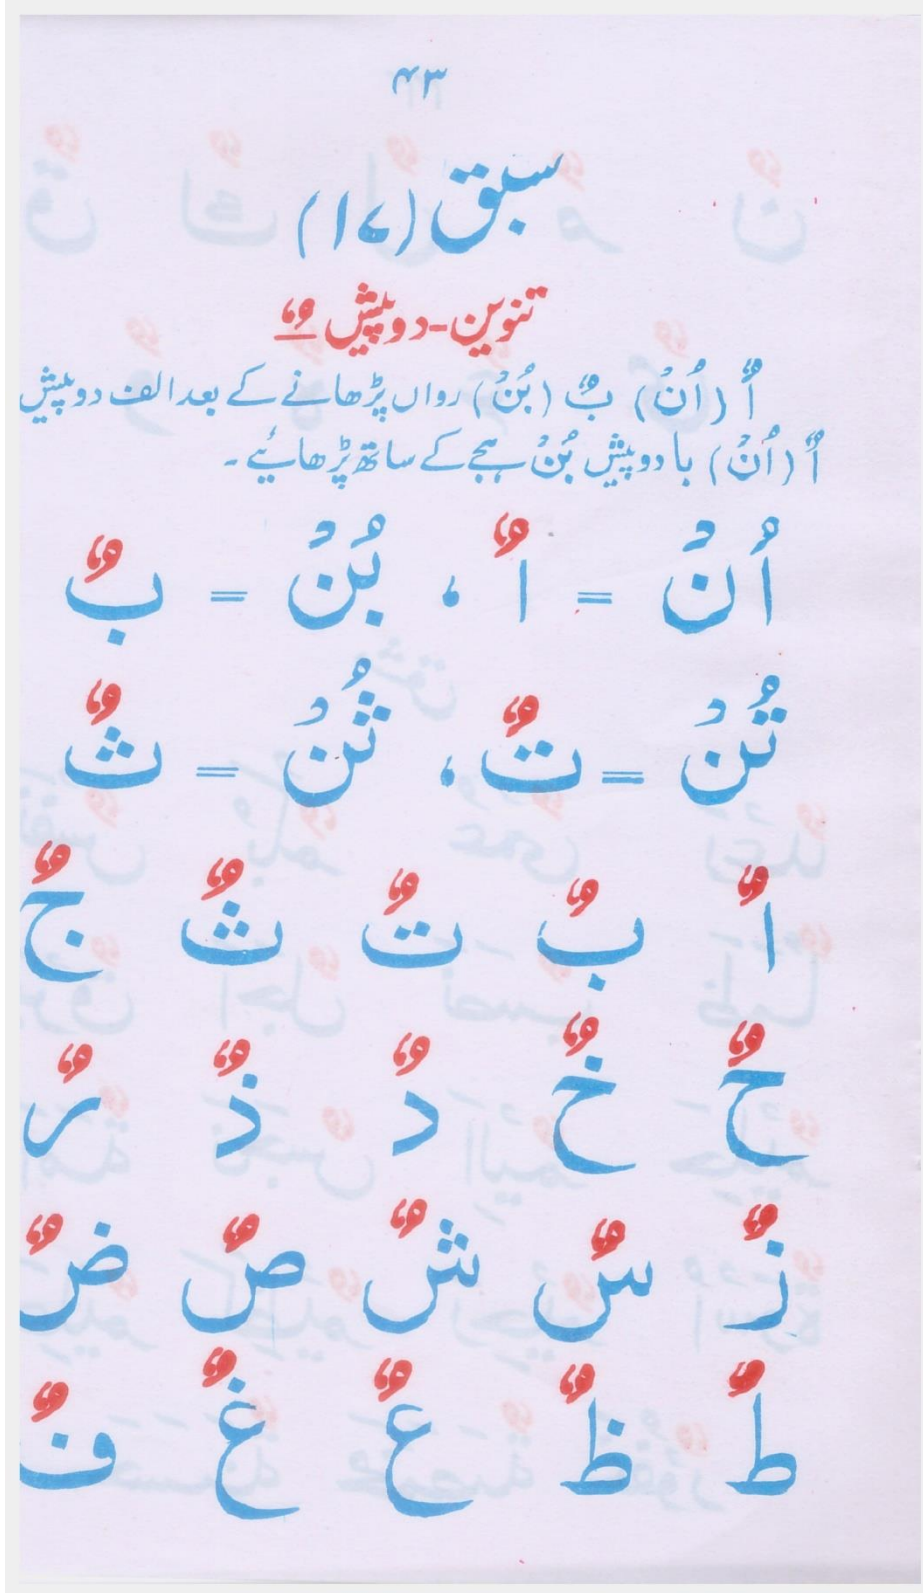 ۴۳
سبق (۱۷)
تنوین-دو پیش ـٌ
اٌ (اُنْ) بٌ (بُنْ) رواں پڑھانے کے بعد الف دو پیش
اٌ (اُنْ) با دو پیش بُنْ ہجے کے ساتھ پڑھایئے۔
اُنْ = اٌ ، بُنْ = بٌ
تُنْ = تٌ ، ثُنْ = ثٌ
اٌ بٌ تٌ ثٌ جٌ
حٌ خٌ دٌ ذٌ رٌ
زٌ سٌ شٌ صٌ ضٌ
طٌ ظٌ عٌ غٌ فٌ